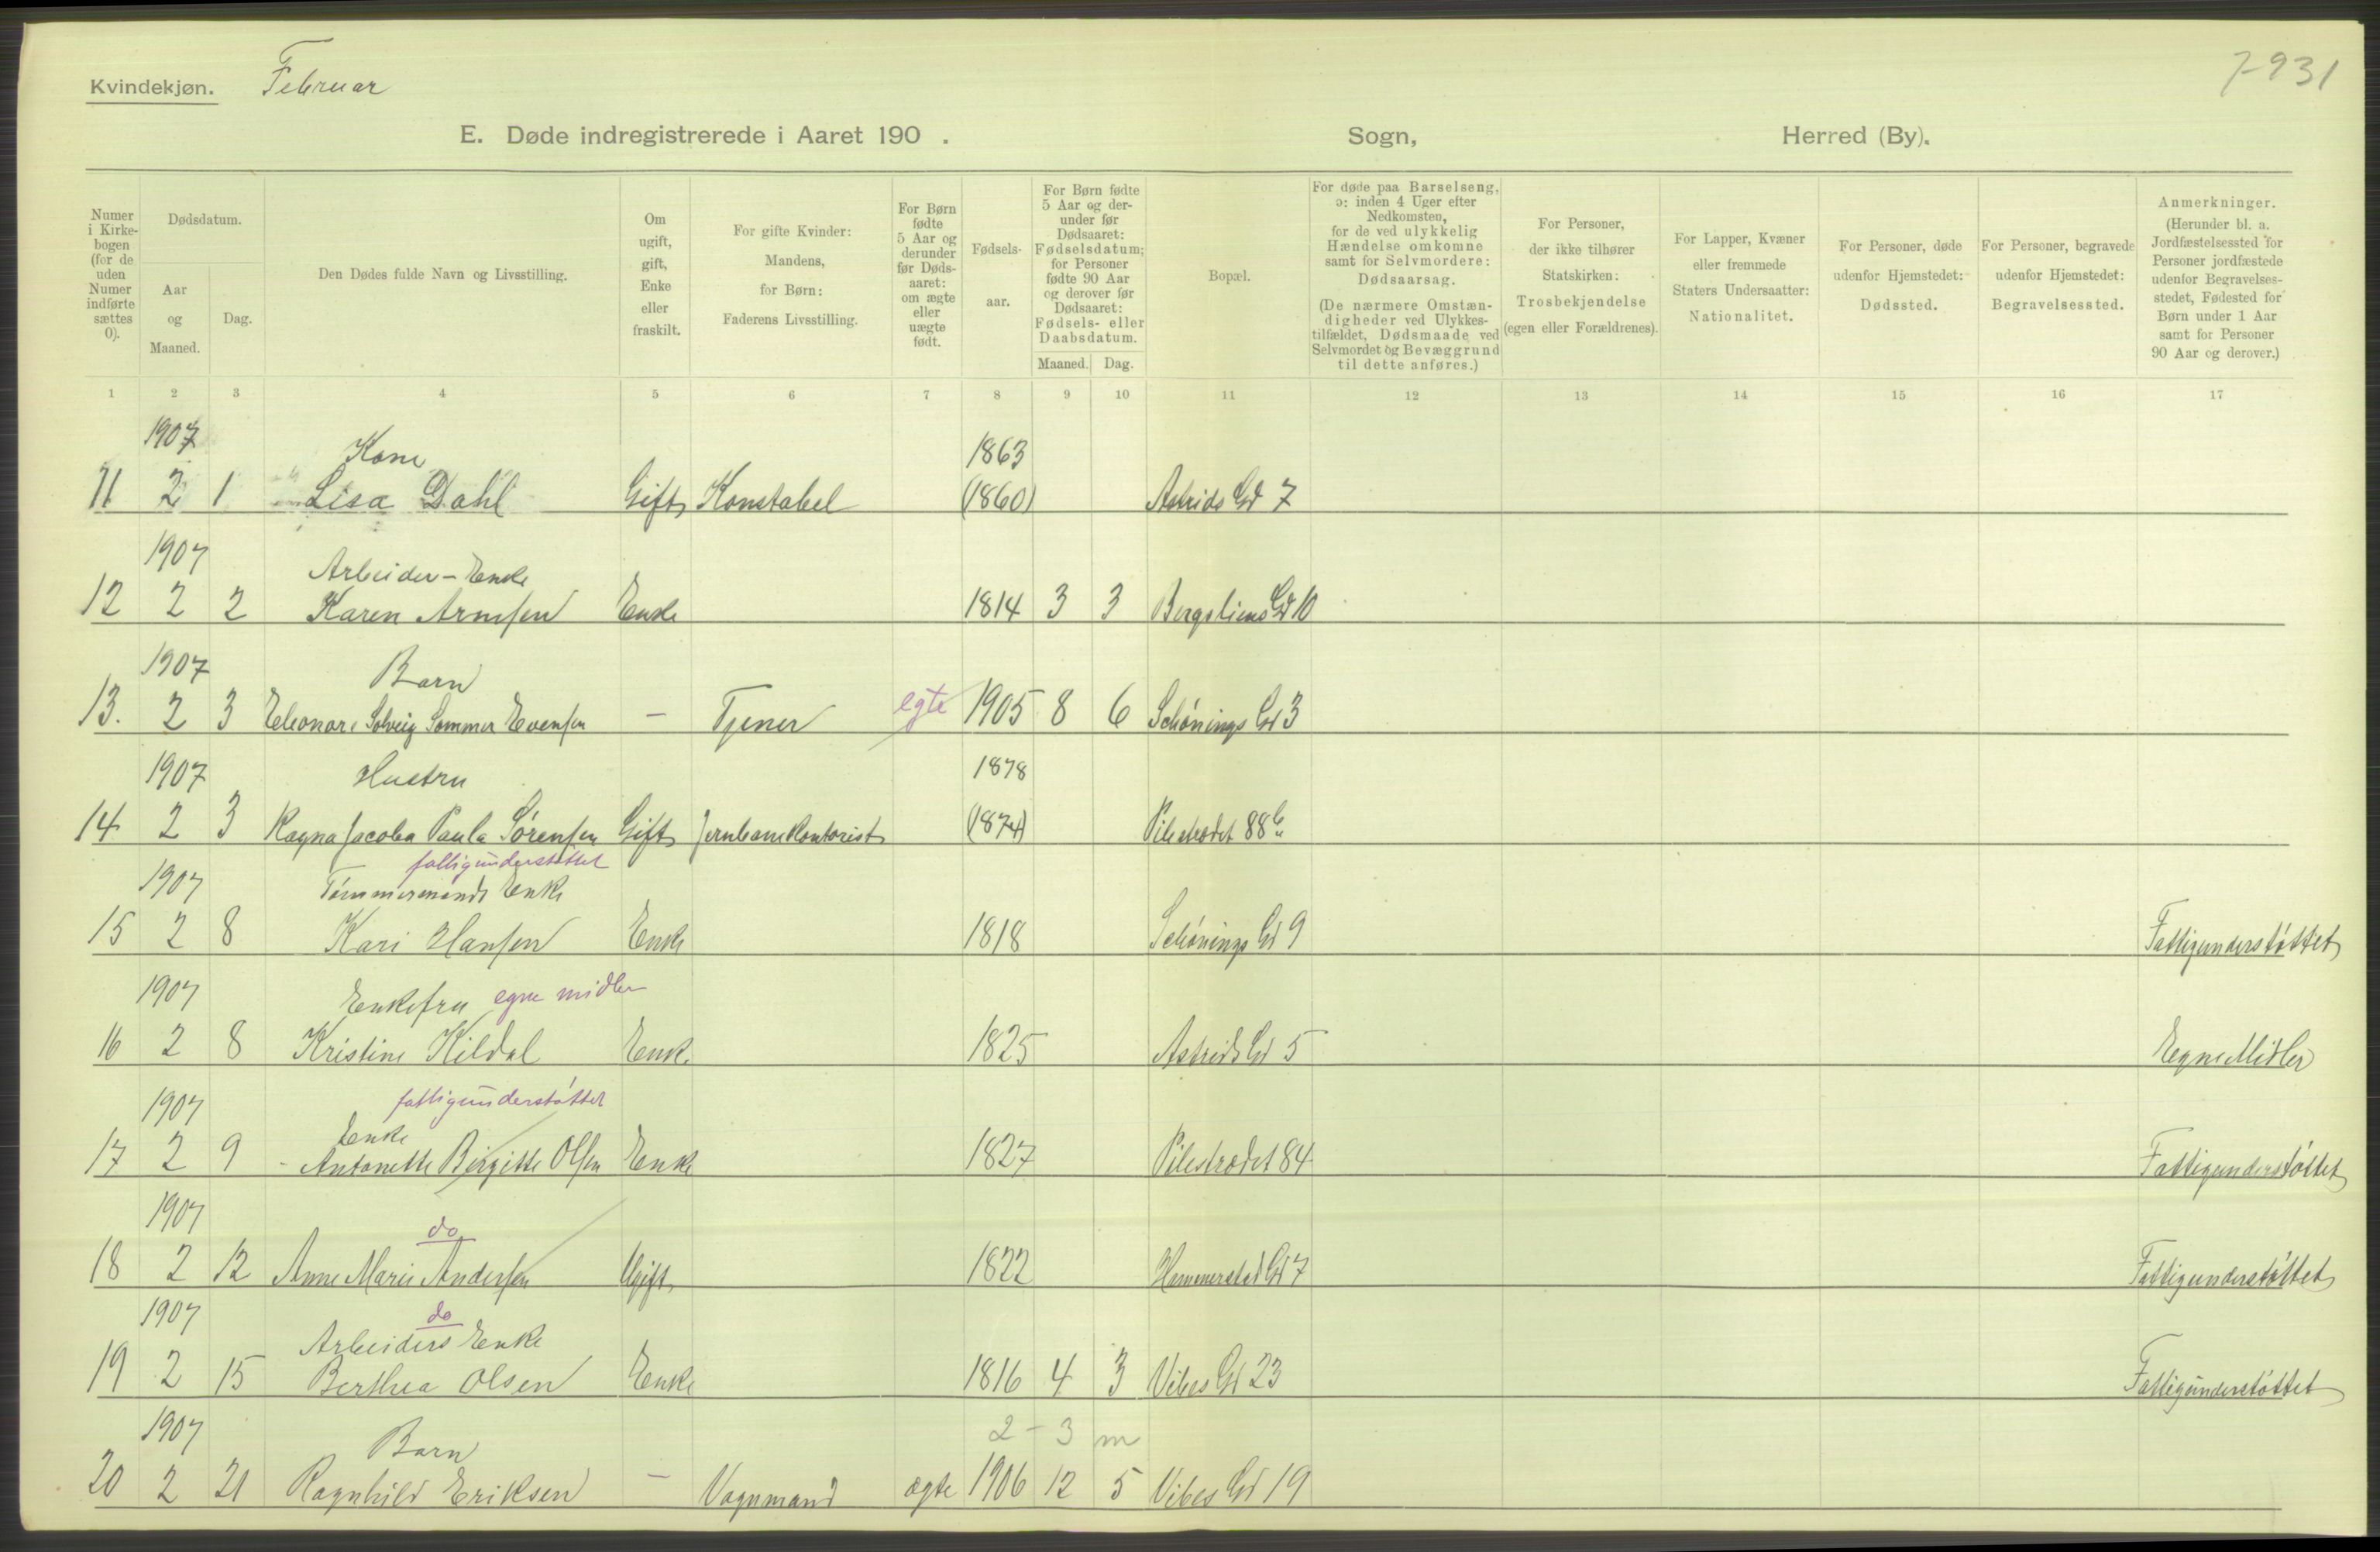 Kvindekjøn. Februar
7-931
E. Døde indregistrerede i Aaret 190 . Sogn, Herred (By).
Numer i Kirke-bogen (for de uden Numer indførte sættes 0).
Dødsdatum.
Aar og Maaned.
Dag.
Den Dødes fulde Navn og Livsstilling.
Om ugift, gift, Enke eller fraskilt.
For gifte Kvinder: Mandens, for Børn: Faderens Livsstilling.
For Børn fødte 5 Aar og derunder før Døds-aaret: om ægte eller uægte født.
Fødsels-aar.
For Børn fødte 5 Aar og der-under før Dødsaaret: Fødselsdatum; for Personer fødte 90 Aar og derover før Dødsaaret: Fødsels- eller Daabsdatum.
Maaned. Dag.
Bopæl.
For døde paa Barselseng, ɔ: inden 4 Uger efter Nedkomsten, for de ved ulykkelig Hændelse omkomne samt for Selvmordere: Dødsaarsag. (De nærmere Omstæn-digheder ved Ulykkes-tilfældet, Dødsmaade ved Selvmordet og Bevæggrund til dette anføres.)
For Personer, der ikke tilhører Statskirken: Trosbekjendelse (egen eller Forældrenes).
For Lapper, Kvæner eller fremmede Staters Undersaatter: Nationalitet.
For Personer, døde udenfor Hjemstedet: Dødssted.
For Personer, begravede udenfor Hjemstedet: Begravelsessted.
Anmerkninger. (Herunder bl. a. Jordfæstelsessted for Personer jordfæstede udenfor Begravelses-stedet, Fødested for Børn under 1 Aar samt for Personer 90 Aar og derover.)
1 2 3 4 5 6 7 8 9 10 11 12 13 14 15 16 17
1907 Kone 1863
11 2 1 Lisa Dahl Gift Konstabel (1860) Astrids Gd 7
1907 Arbeider-Enke
12 2 2 Karen Arnesen Enke 1814 3 3 Bergsliens Gd 10
1907 Barn
13. 2 3 Eleonora Solveig Sommer Evensen — Tjener egte 1905 8 6 Schönings Gd 3
1907 Hustru 1878
14 2 3 Ragna Jacoba Paula Sørensen Gift Jernbanekontorist (1874) Pilestrædet 88b
fattigunderstøttet
1907 Tømmermands Enke
15 2 8 Kari Hansen Enke 1818 Schönings Gd 9 Fattigunderstøttet
1907 Enkefru egne midler
16 2 8 Kristine Kildal Enke 1825 Astrids Gd 5 Egne Midler
1907 fattigunderstøttet
Enke
17 2 9 Antonette Birgitte Olsen Enke 1827 Pilestrædet 84 Fattigunderstøttet
1907 do
18 2 12 Anne Marie Andersen Ugift 1822 Hammerstad Gd 7 Fattigunderstøttet
1907 do
Arbeiders Enke
19 2 15 Berthea Olsen Enke 1816 4 3 Vibes Gd 23 Fattigunderstøttet
1907 Barn 2-3 m
20 2 21 Ragnhild Eriksen — Vognmand ægte 1906 12 5 Vibes Gd 19